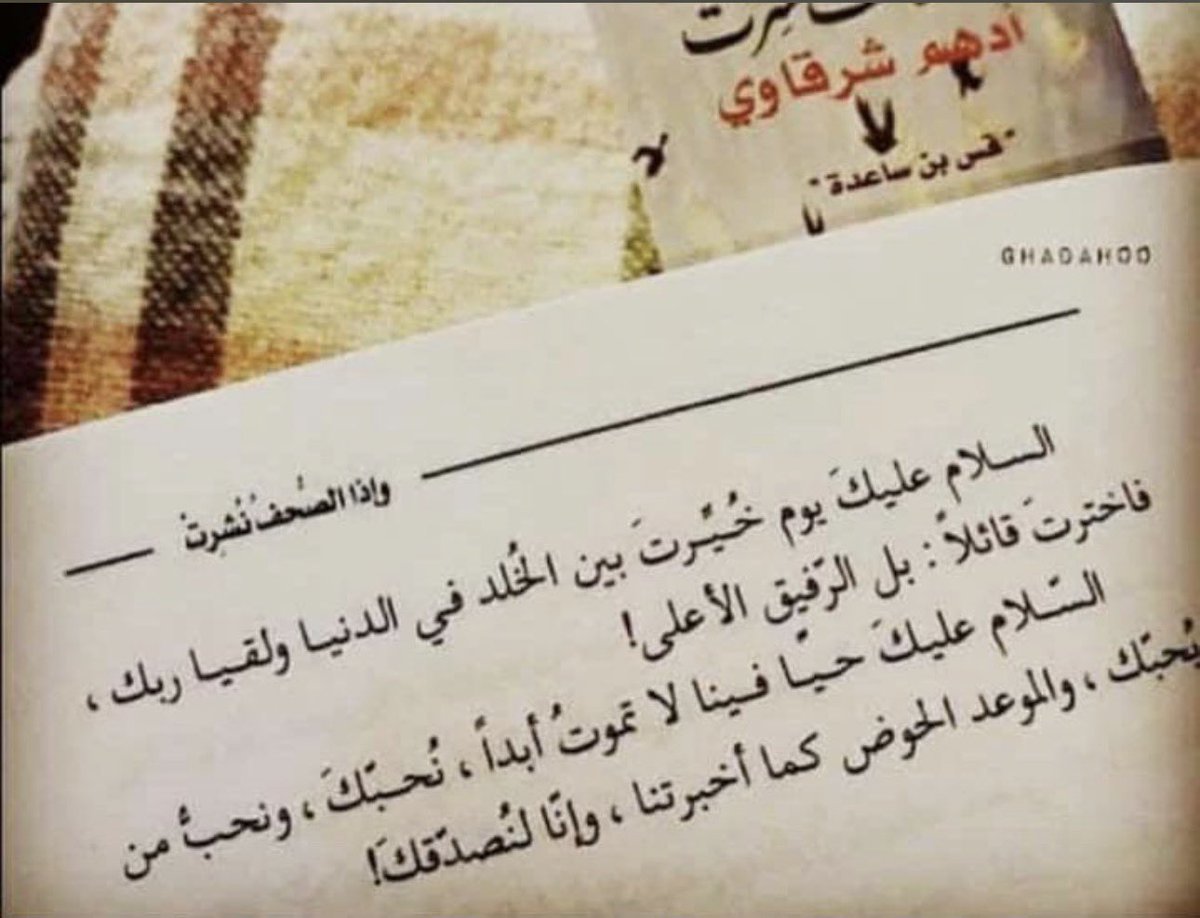 أدهم شرقاوي
"قس بن ساعدة"
GHADAHOO
وإذا الصُّحفُ نُشرِتْ
السلام عليكَ يوم خُيِّرتَ بين الخُلد في الدنيا ولقيا ربك ،
فاخترتَ قائلاً : بل الرّفيق الأعلى!
السّلام عليكَ حيّا فينا لا تموتُ أبداً ، نُحبّكَ ، ونحبُّ من
يُحبّك ، والموعد الحوض كما أخبرتنا ، وإنّا لنُصدّقكَ!